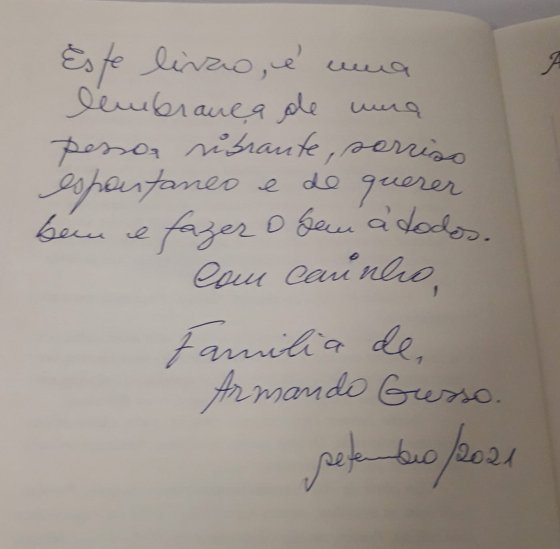 Este livro, é uma
lembrança de uma
pessoa vibrante, sorriso
espontaneo e de querer
bem e fazer o bem à todos.
Com carinho,
Familia de,
Armando Gusso.
setembro/2021